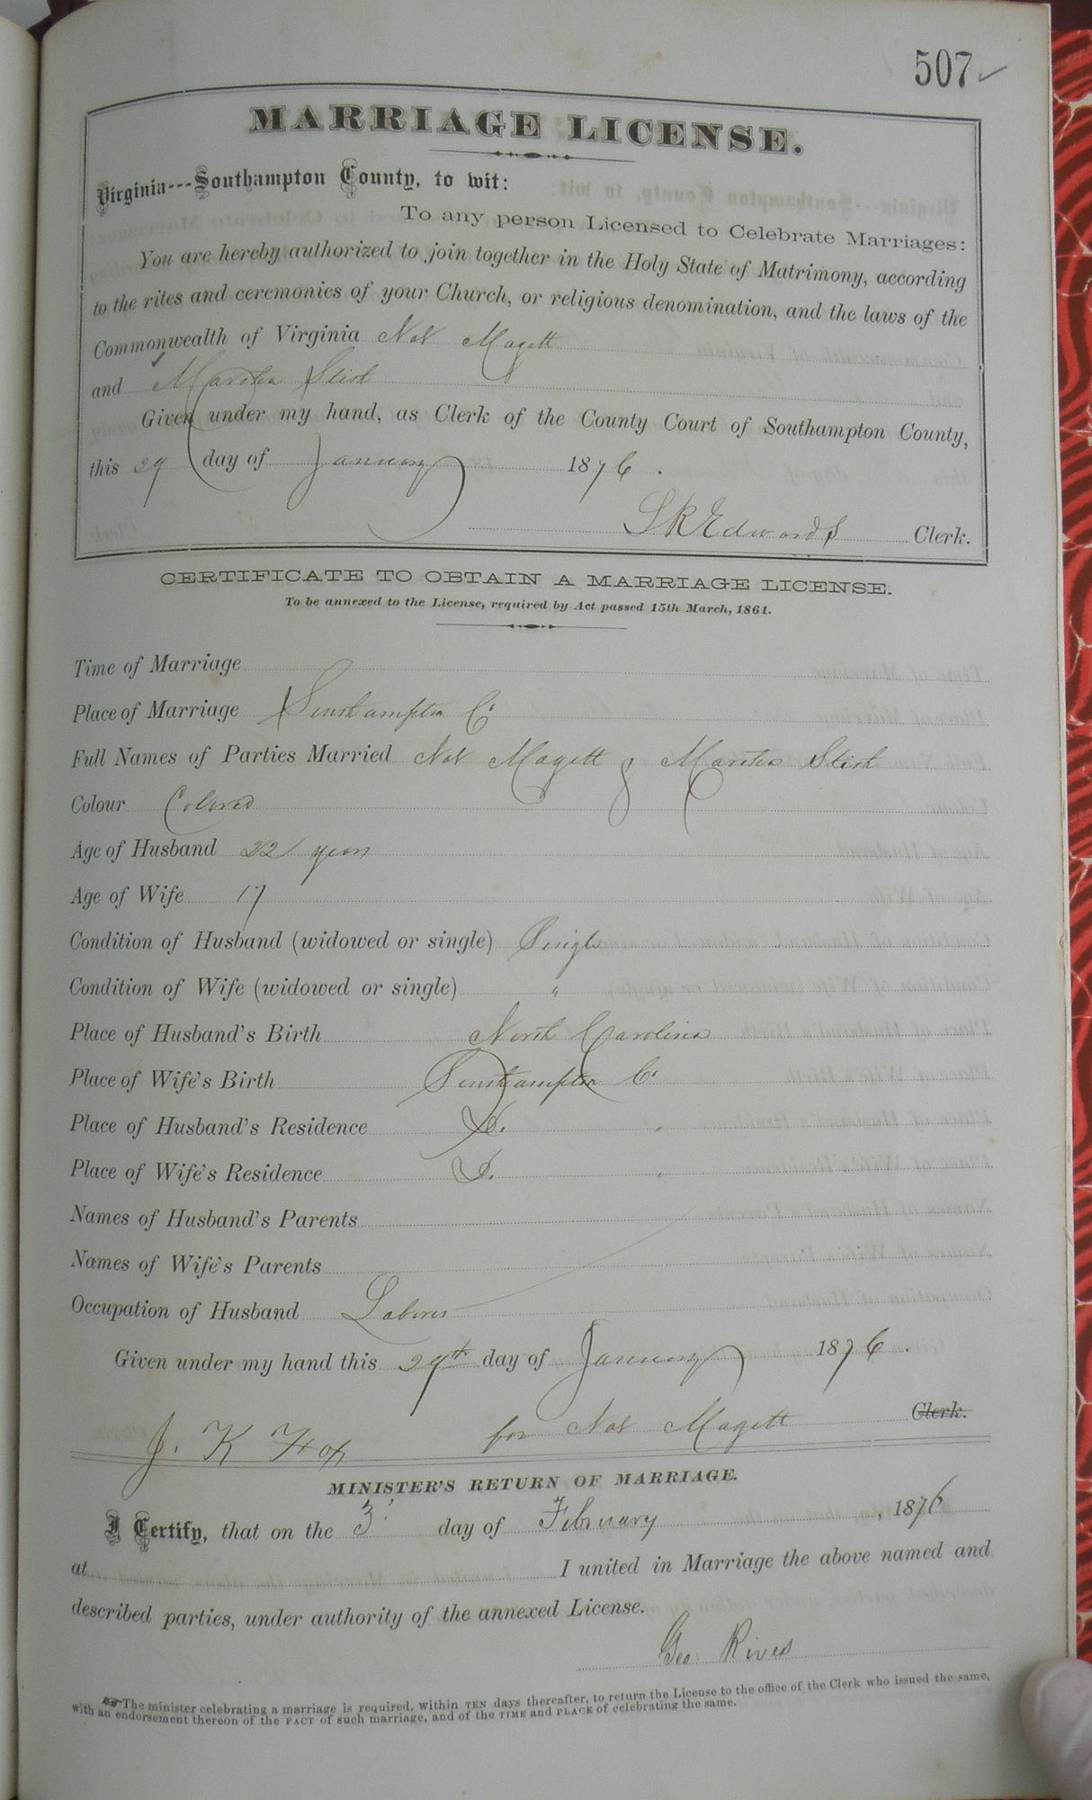 507 ✓
MARRIAGE LICENSE.
Virginia---Southampton County, to wit:
To any person Licensed to Celebrate Marriages:
You are hereby authorized to join together in the Holy State of Matrimony, according
to the rites and ceremonies of your Church, or religious denomination, and the laws of the
Commonwealth of Virginia Nat Magett
and Martha
Given under my hand, as Clerk of the County Court of Southampton County,
this 29 day of January 1876.
S R Edwards Clerk.
CERTIFICATE TO OBTAIN A MARRIAGE LICENSE.
To be annexed to the License, required by Act passed 15th March, 1861.
Time of Marriage
Place of Marriage Southampton Co
Full Names of Parties Married Nat Magett & Martha
Colour Colored
Age of Husband 22 years
Age of Wife 17
Condition of Husband (widowed or single) Single
Condition of Wife (widowed or single) "
Place of Husband's Birth North Carolina
Place of Wife's Birth Southampton Co
Place of Husband's Residence Do.
Place of Wife's Residence Do.
Names of Husband's Parents
Names of Wife's Parents
Occupation of Husband Laborer
Given under my hand this 29th day of January 1876.
J. K for Nat Magett Clerk.
MINISTER'S RETURN OF MARRIAGE.
I Certify, that on the 3 day of February, 1876
at I united in Marriage the above named and
described parties, under authority of the annexed License.
Geo. Rives
The minister celebrating a marriage is required, within TEN days thereafter, to return the License to the office of the Clerk who issued the same,
with an endorsement thereon of the FACT of such marriage, and of the TIME and PLACE of celebrating the same.